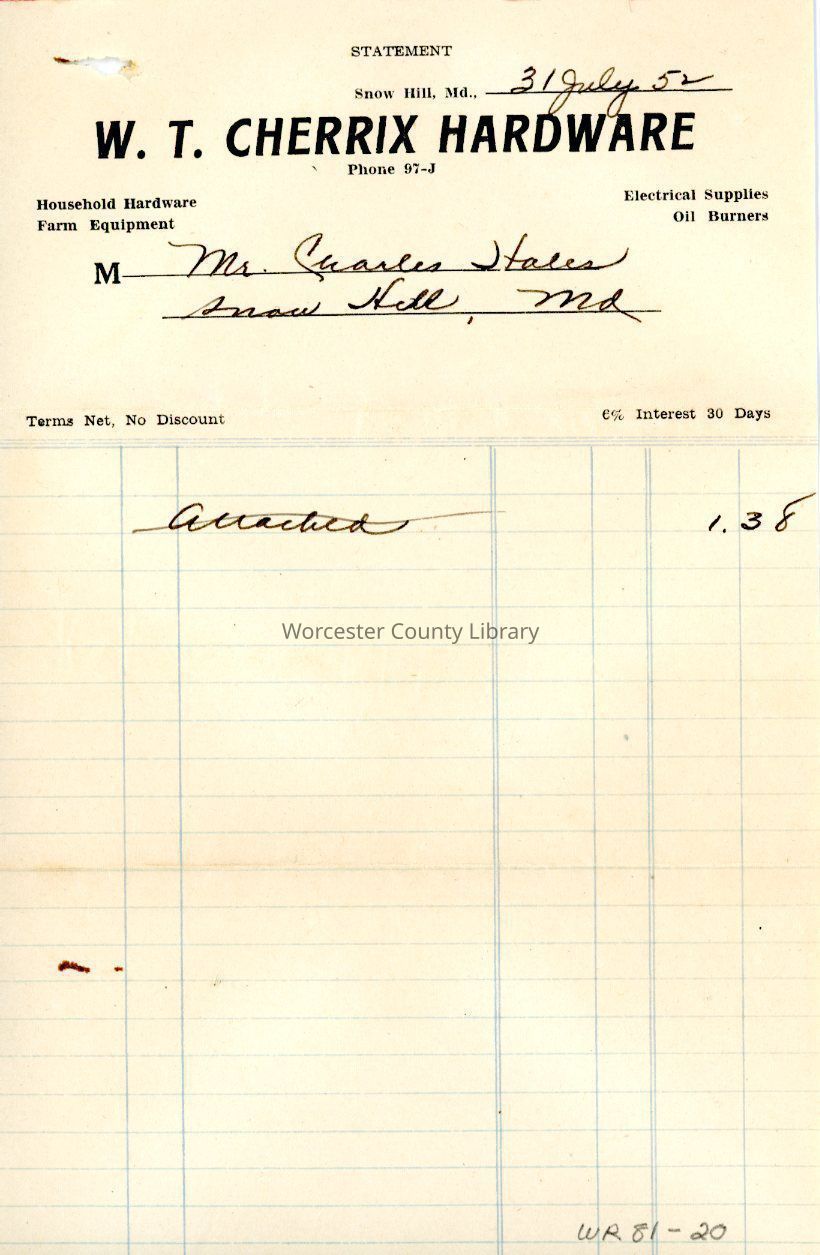 STATEMENT
Snow Hill, Md., 31 July 52
W. T. CHERRIX HARDWARE
Phone 97-J
Household Hardware Electrical Supplies
Farm Equipment Oil Burners
M Mr. Charles Hales
Snow Hill, Md
Terms Net, No Discount 6% Interest 30 Days
Attached 1.38
Worcester County Library
WR 81-20